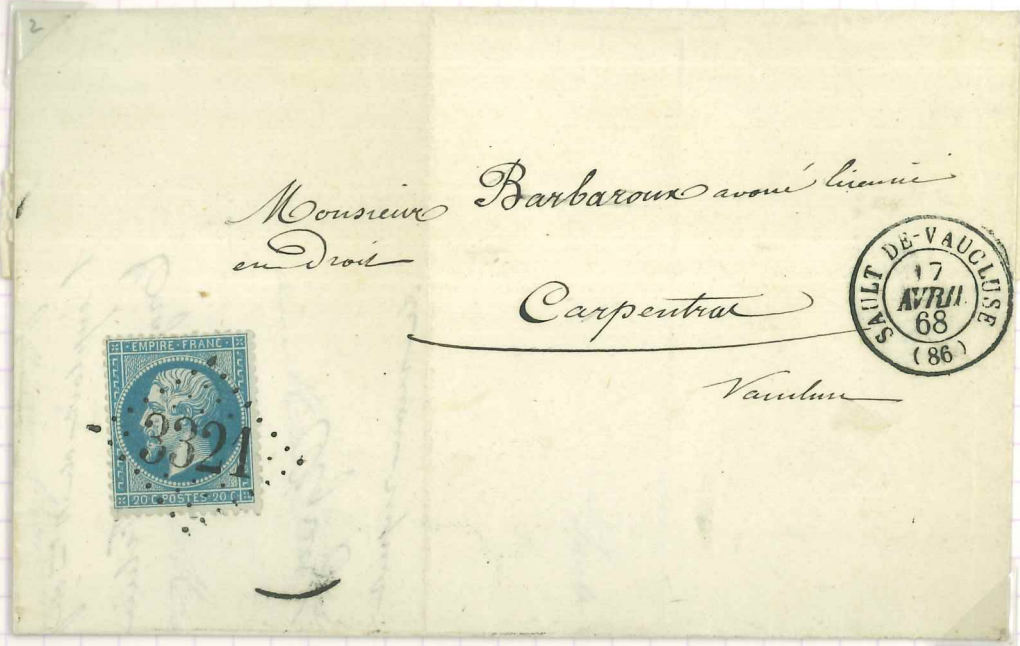 2
Monsieur Barbaroux avoué licencié
en Droit
Carpentras
Vaucluse
SAULT DE-VAUCLUSE
17
AVRIL
68
(86)
EMPIRE FRANC
3321
20 C POSTES 20 C